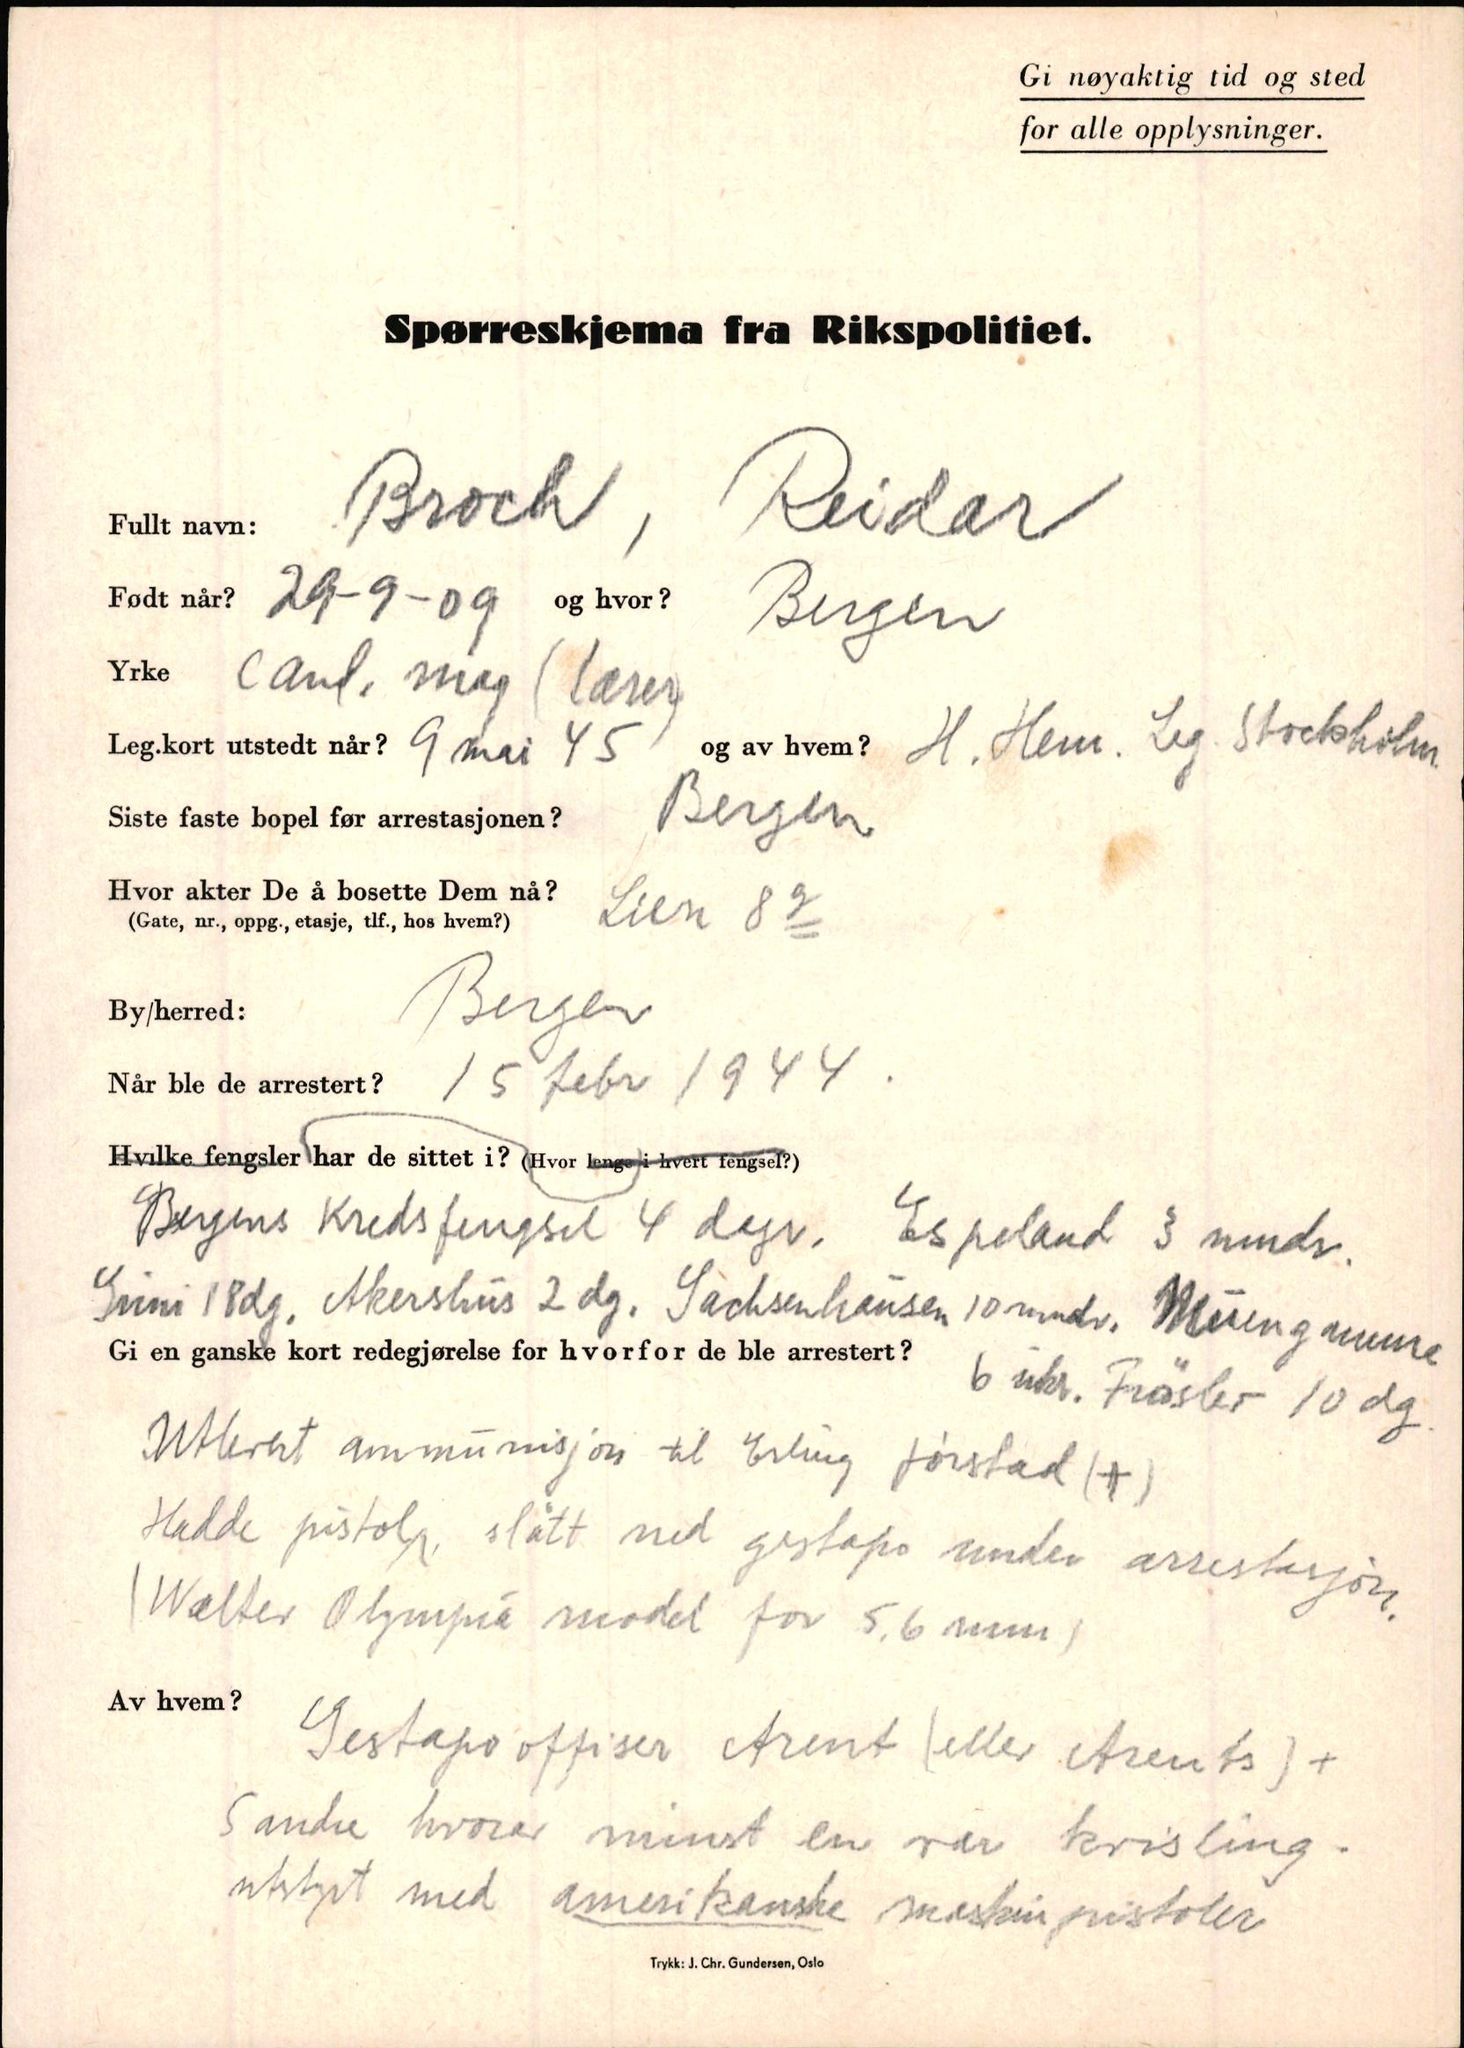 Gi nøyaktig tid og sted
for alle opplysninger.
Spørreskjema fra Rikspolitiet.
Fullt navn: Broch, Reidar
Født når? 29-9-09 og hvor? Bergen
Yrke Cand. mag (lærer)
Leg.kort utstedt når? 9 mai 45 og av hvem? H. Hem. Leg. Stockholm.
Siste faste bopel før arrestasjonen? Bergen
Hvor akter De å bosette Dem nå? Lien 8
(Gate, nr., oppg., etasje, tlf., hos hvem?)
By/herred: Bergen
Når ble de arrestert? 15 febr 1944.
Hvilke fengsler har de sittet i? (Hvor lenge i hvert fengsel?)
Bergens Kredsfengsel 4 dagr. Espeland 3 mndr.
Grini 18dg. Akershus 2 dg. Sachsenhausen 10 mndr. Neuengamme
Gi en ganske kort redegjørelse for hvorfor de ble arrestert?
6 ukr. Frøslev 10 dg.
Utlevert ammunisjon til Erling Jørstad (+)
Hadde pistol, slått ned gestapo under arrestasjon.
(Walter Olympia model for 5,6 mm)
Av hvem?
Gestapooffiser Arent (eller Arents) +
5 andre hvorav minst en var kvisling.
utstyrt med amerikanske maskinpistoler
Trykk: J. Chr. Gundersen, Oslo